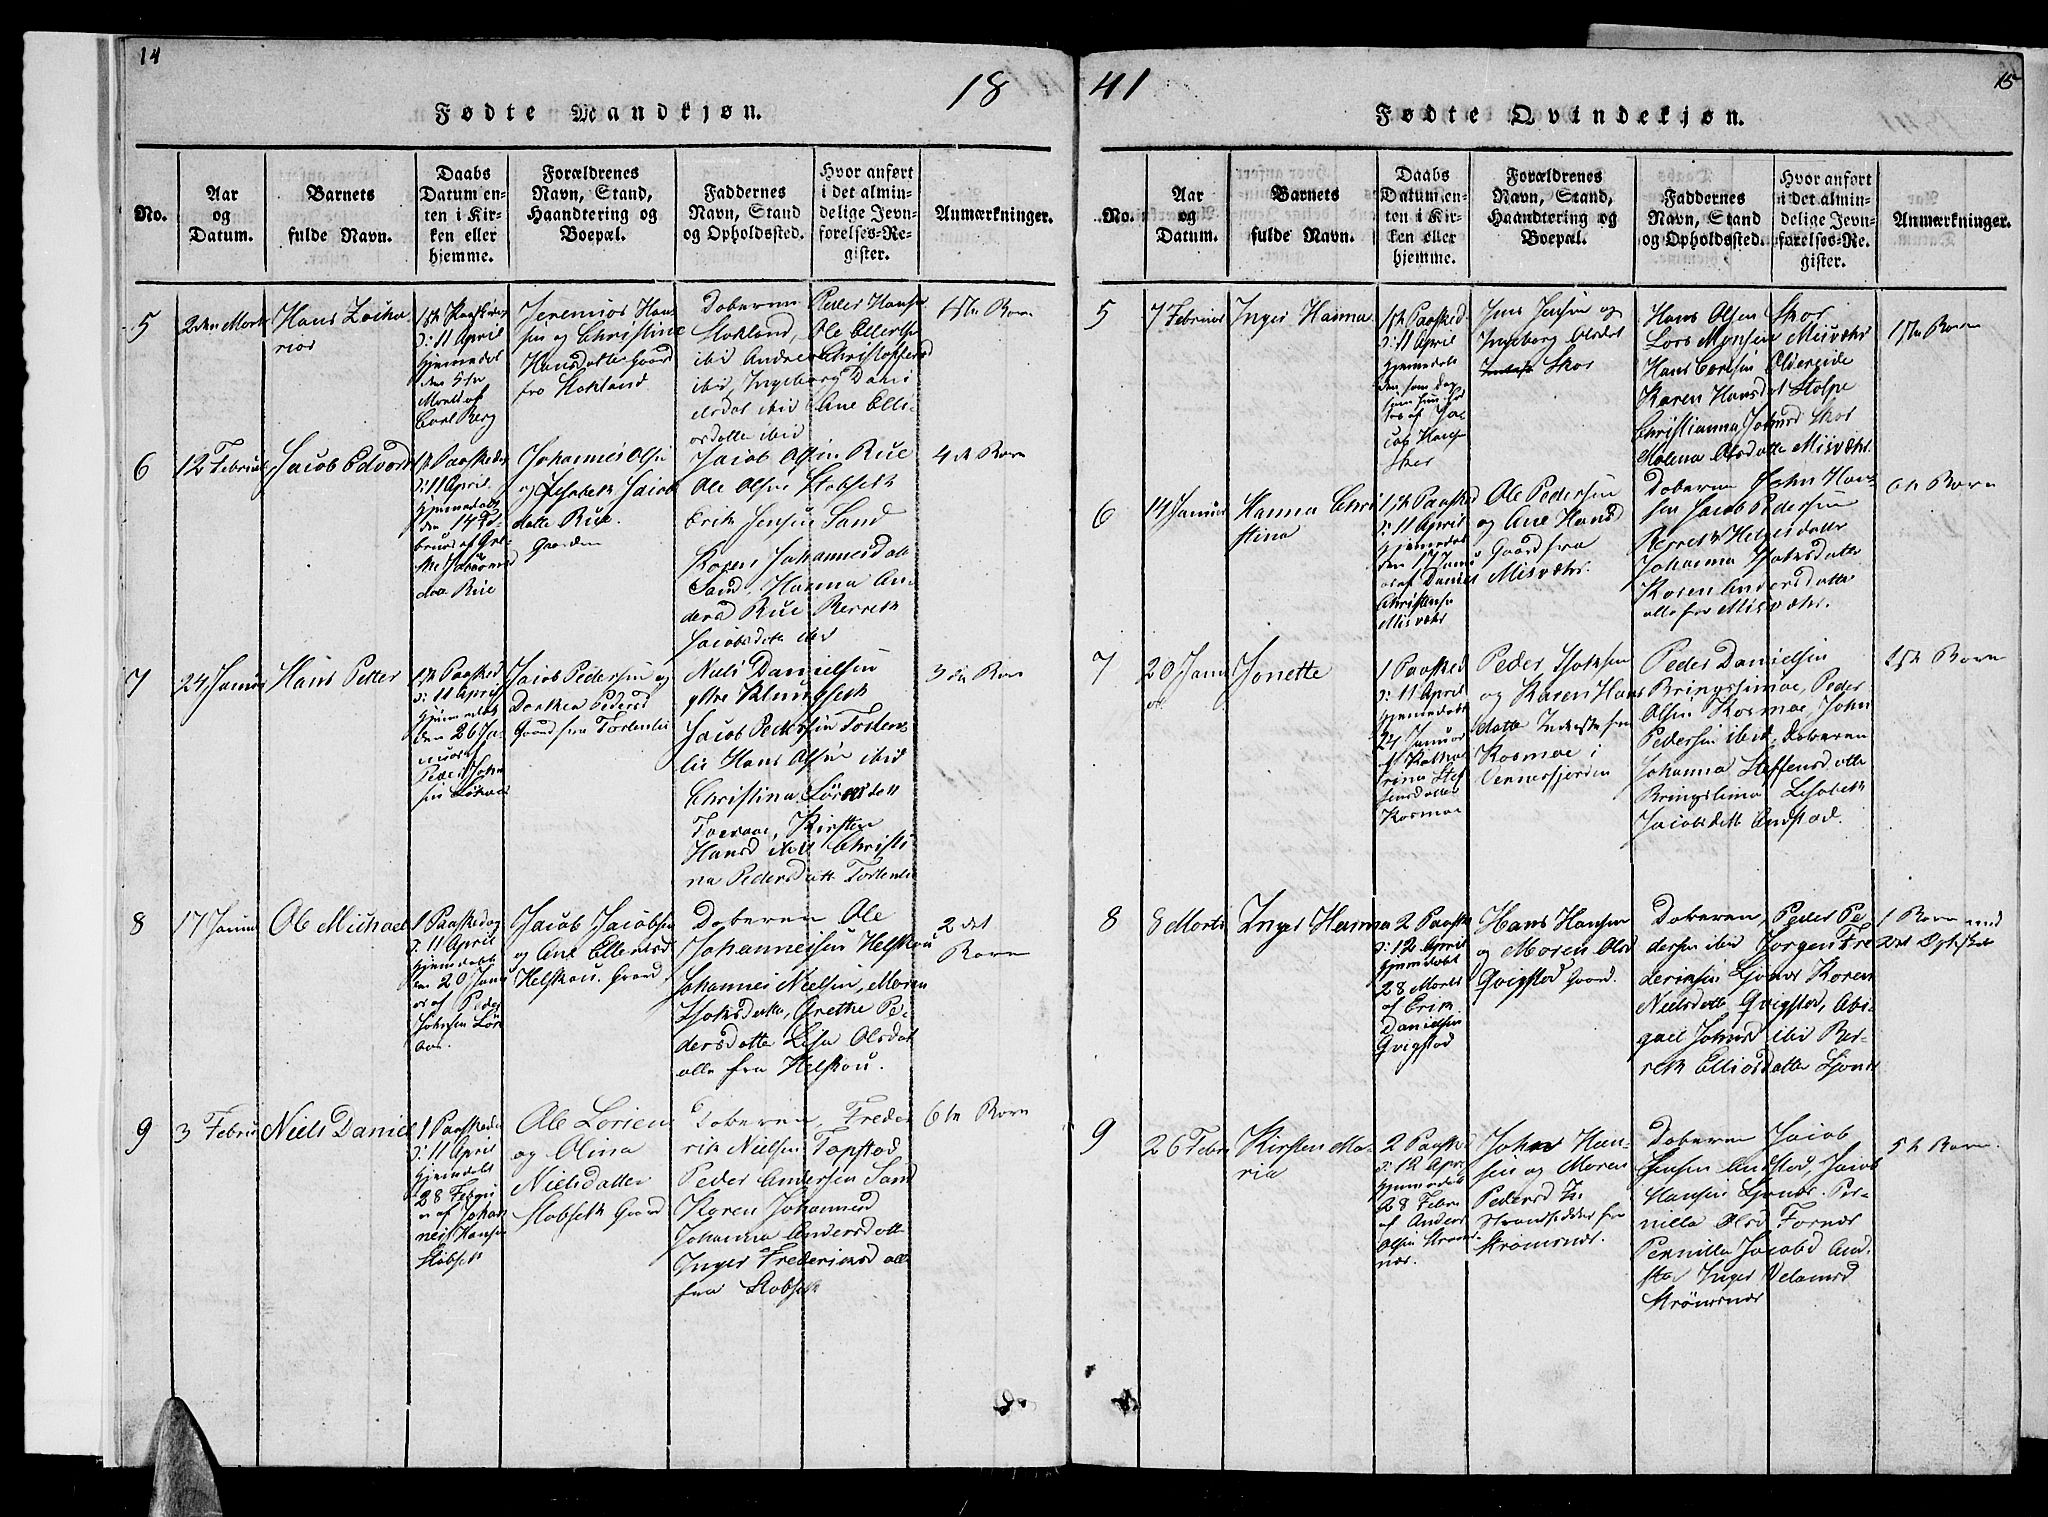 14
18
Fødte Mandkjøn.
No.
Aar
og
Datum.
Barnets
fulde Navn.
Daabs
Datum en-
ten i Kir-
ken eller
hjemme.
Forældrenes
Navn, Stand,
Haandtering og
Boepæl.
Faddernes
Navn, Stand
og Opholdssted.
Hvor anført
i det almin-
delige Jevn-
førelses-Re-
gister.
Anmærkninger.
5
2den Marts
Hans Zacha
rias
1ste Paaskedag
d: 11 April
hjemmedøbt
den 5te
Carl Berg
Jeremias Han
sen og Christine
Hansdatter Gaard
fra Stokland
Daberen Peder Hansen
Stokland, Ole Ellertsen
ibid Andreas Christophersen
ibid, Ingeborg Dani
elsdat ibid Ane Elli
asdatter ibid
1ste Barn
6
12 Februar
Jacob Edvard
1ste Paaskedag
d: 11 April
hjemmedøbt
den 14 Fe
bruar af
Rue
Johannes Olsen
og Jacob
datter Rue.
Gaarden
Jacob Olsen Rue
Ole Olsen Stobseth
Erik Jensen Sand
Karen Johannesdatt
Sand. Hanna An
dersd Rue Bereth
Jacobsdatter ibid
4de Barn
7
24 Januar
Hans Petter
1ste Paasked
d: 11 April
hjemmedøbt
den 26 Ja-
nuar
Peder John
sen
Jacob Pedersen og
Dorthea Pedersd
Gaard fra Tortenlie
Niels Danielsen
ytre Klumbseth
Jacob Pedersen Torten
lie Hans Olsen ibid
Christina
Kirsten
Hansd ibid Christi
na Pedersdatt Tortenlie
3die Barn
8
17 Januar
Ole Michael
1 Paaskedag
d: 11 April
hjemmedøbt
den 20 Janu
ar af Peder
Johnsen
Jacob Jacobsen
og Ane Ellertsd
Helskou. Gaard
Daberen Ole
Johannessen Helskou
Johannes Nielsen, Maren
Isaksdatter, Grethe Pe-
dersdatter Lisa Olsdat
alle fra Helskou.
2 det
Barn
9
3 Februar
Niels Daniel
1 Paaskedag
d: 11 April
hjemmedøbt
28 Febru
ar af Johan
nes Hansen
Stobseth
Ole Lorien
og Olina
Nielsdatter
Stobseth Gaard
Daberen, Frede
rik Nielsen Topstad
Peder Andersen Sand
Karen Johannesd
Johanna Andersdatt
Inger Frederiksd alle
fra Stobseth
6te Barn
41
15
Fødte Qvindekjøn.
No.
Aar
og
Datum.
Barnets
fulde Navn.
Daabs
Datum en-
ten i Kir-
ken eller
hjemme.
Forældrenes
Navn, Stand,
Haandtering og
Boepæl.
Faddernes
Navn, Stand
og Opholdssted.
Hvor anført
i det almin-
delige Jevn-
førelses-Re-
gister.
Anmærkninger.
5
7 Februar
Inger Hanna
1ste Paasked
d: 11 April
hjemmedøbt
den samme dag
af Jac
ob Hansen
Skar
Jens Jensen og
Ingeborg Olsdat
Skar
Hans Olsen Skar
Lars Monsen Misvær
Hans Carlsen Oldereide
Karen Hansdat Stolpe
Christianna Johnsd Skar
Malena Olsdatter Misvær
1ste Barn
6
14 Januar
Hanna Chri
stina
1ste Paasked
d: 11 April
hjemmedøbt
den 17 Janu
ar af Daniel
Christensen
Misvær
Ole Pedersen
og Ane Hansd
Gaard fra
Misvær.
Daberen John Han
sen Jacob Pedersen
Bereth Helgesdatter
Johanna Isaksdatter
Karen Andersdatter
alle fra Misvær.
Barn
7
20 Janu
ar
Jonette
1 Paasked
d: 11 April
hjemmedøbt
24 Januar
af Katha
rina Stef
fensdatter
Kosmoe
Peder Isaksen
og Karen Hans
datter Inderste fra
Kosmoe i
Vennesfjorden
Peder Danielsen
Bringslimoe, Peder
Olsen Kosmoe, John
Pedersen ibid, daberen
Johanna Steffensdatter
Bringslimo Lisabeth
Jacobsdatt Andstad.
2det Barn
8
8 Marts
Inger Hanna
2 Paaske
d: 12 April
hjemmedøbt
28 Marts
af Erik
Danielsen
Qvigstad
Hans Hansen
og Maren Olsd
Qvigstad Gaard.
Daberen, Peder Pe
dersen ibid Jørgen Fre
deriksen Ljønes Karen
Nielsdatter Qvigstad, Abi
gael Johnsd ibid Be-
reth Elliasdatter Ljønes
1 Barn med
2det Ægteskab
9
26 Febru
Kirsten Ma-
ria
2 Paasked
d: 12 April
hjemmedøbt
28 Febru
af Anders
Olsen Strøms-
nes.
John Han-
sen og Maren
Pedersd In.
Strandsidder fra
Strømsnes.
Daberen Jacob
Jensen Andstad, Jacob
Hansen Ljønes. Per-
nilla Olsd Fornes
Pernilla Jacobsd And-
stad Inger Velamsd
Strømsnes
5te Barn.